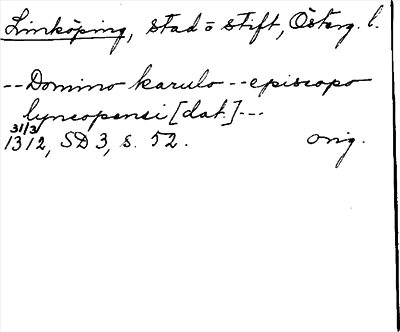 Linköping, stad o stift, Österg. l.
--Domino karulo--episcopo
lyncopensi [dat.]---
31/3
1312, SD 3, s. 52. orig.